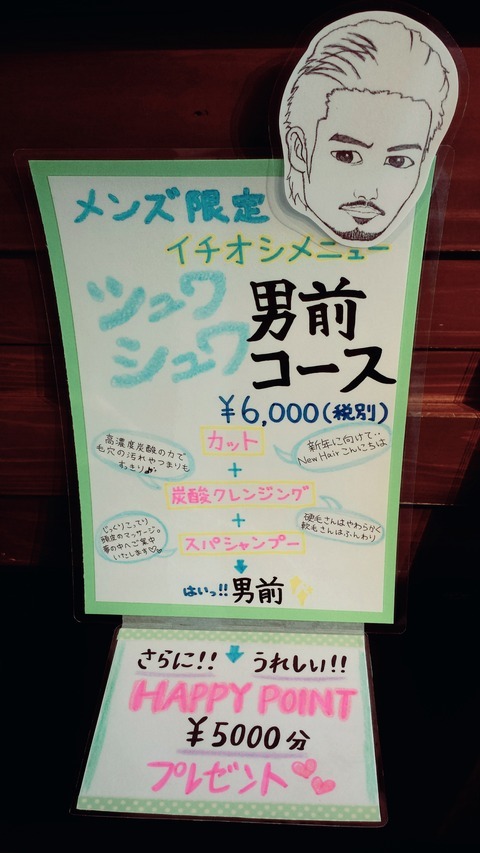 メンズ限定
イチオシメニュー
シュワ
シュワ
男前
コース
¥6,000(税別)
カット
高濃度炭酸の力で
毛穴の汚れやつまりも
すっきり♪
新年に向けて‥
New Hairこんにちは
+
炭酸クレンジング
+
じっくりこってり
頭皮のマッサージ。
夢の中へご案内
いたします♡
硬毛さんはやわらかく
軟毛さんはふんわり
スパシャンプー
はいっ!!男前
さらに!! うれしい!!
HAPPY POINT
¥5000分
プレゼント